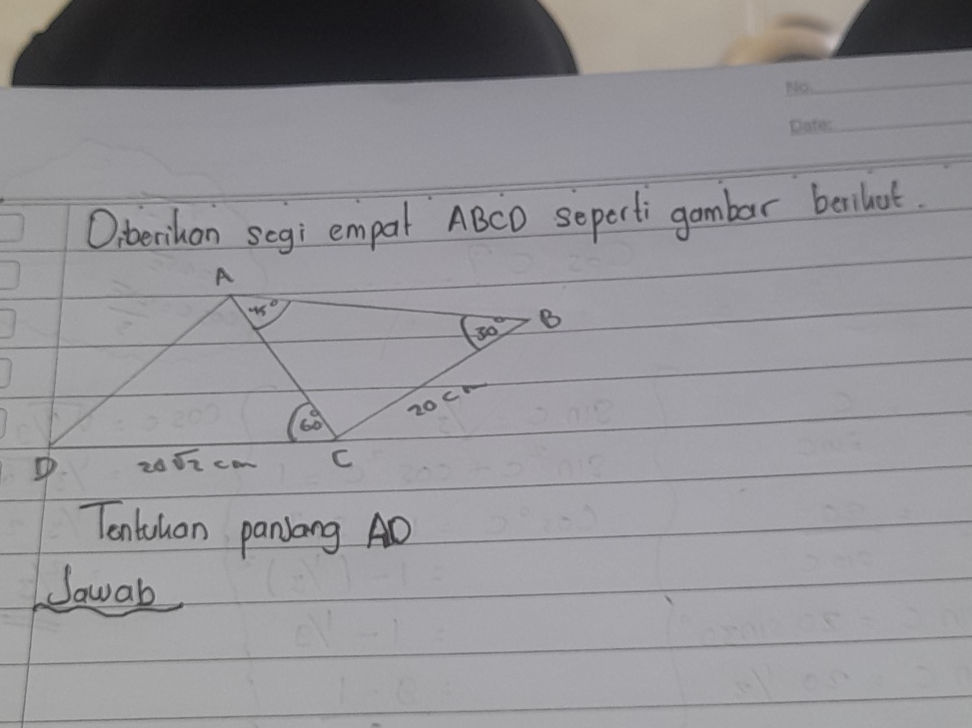 No.
Date:
Diberikan segi empat ABCD seperti gambar berikut.
A
45°
B
30°
20 cm
60°
D
20√2 cm
C
Tentukan panjang AD
Jawab